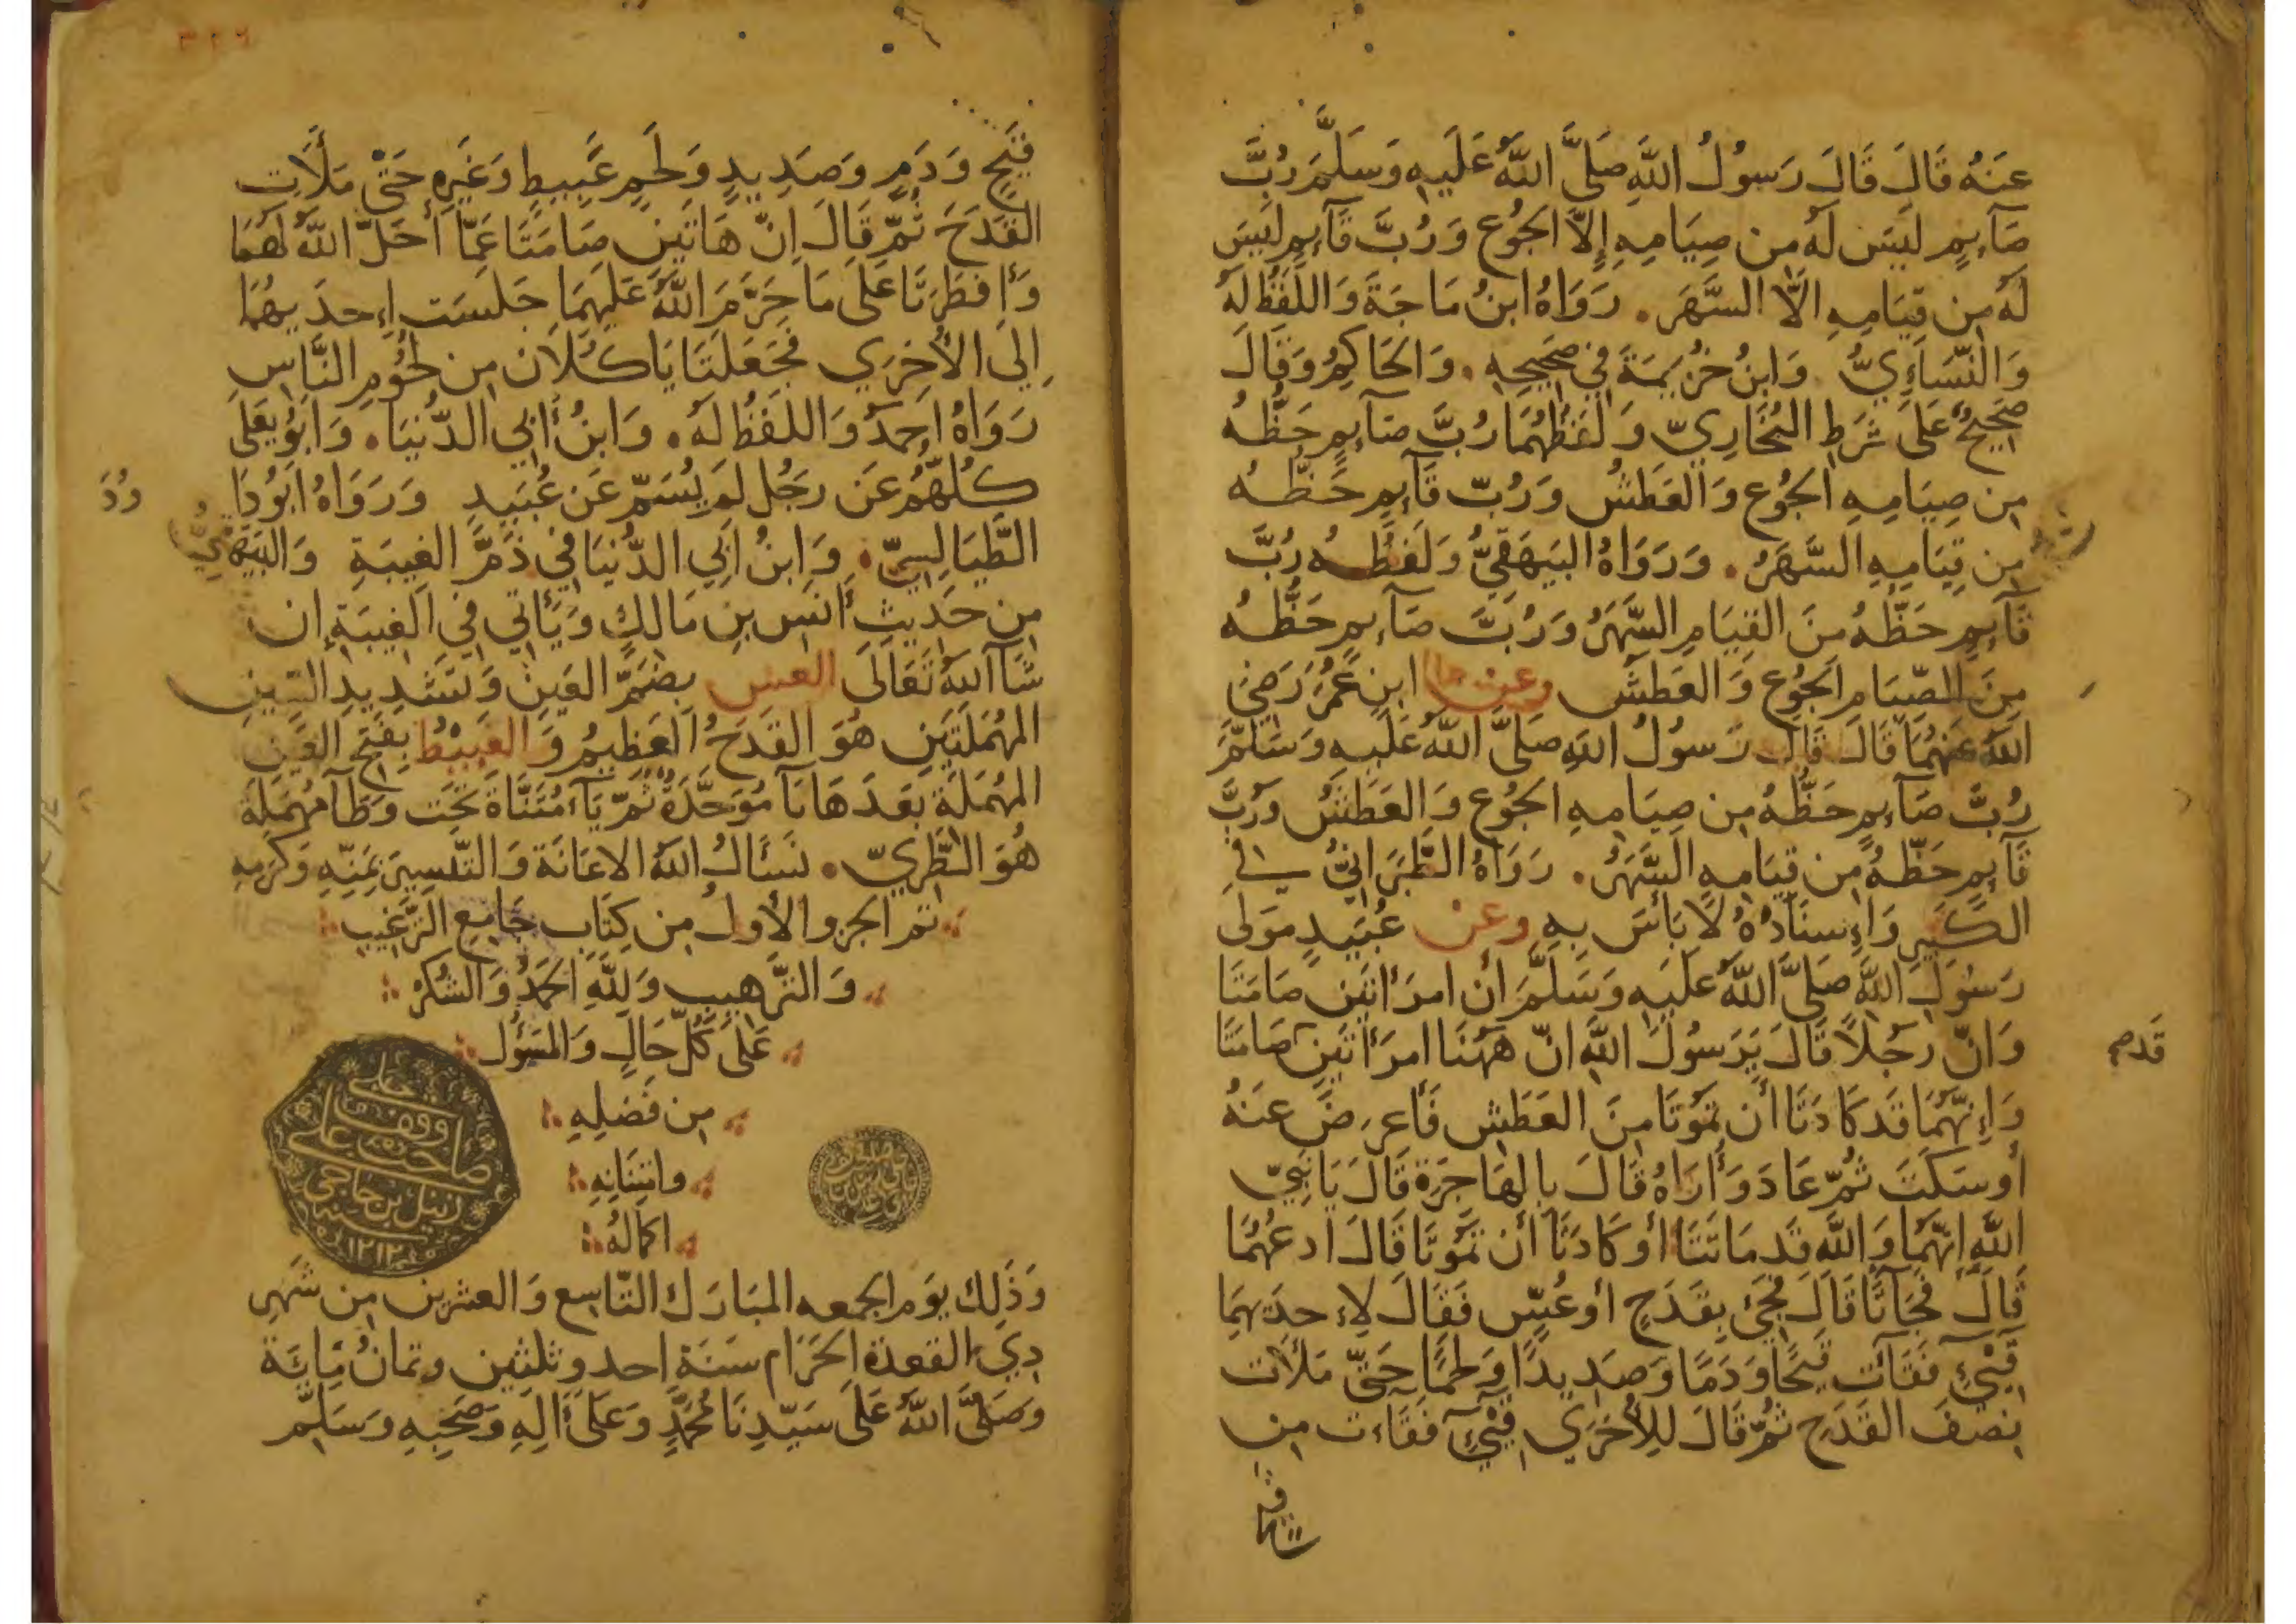 عنه قال قال رسول الله صلى الله عليه وسلم رب
صآيم ليس له من صيامه إلا الجوع ورب قآيم ليس
له من قيامه الا السهر. رواه ابن ماجة واللفظ له
والنسآءي وابن خزيمة في صحيحه. والحاكم وقال
صحيح على شرط البخاري ولفظهما رب صآيم حظه
من صيامه الجوع والعطش ورب قآيم حظه
من قيامه السهر. ورواه البيهقي ولفظه رب
قآيم حظه من القيام السهر ورب صآيم حظه
من الصيام الجوع والعطش وعن ابن عمر رضي
الله عنهما قال قال رسول الله صلى الله عليه وسلم
رب صآيم حظه من صيامه الجوع والعطش ورب
قآيم حظه من قيامه السهر. رواه الطبراني في
الكبير وإسناده لا بأس به وعن عبيد مولى
رسول الله صلى الله عليه وسلم أن امرأتين صامتا
وان رجلا قال يرسول الله ان ههنا امرأتين صامتا
وإنهما قد كادتا أن تموتا من العطش فأعرض عنه
أو سكت ثم عاد وأراه قال بالهاجرة قال يا نبي
الله إنهما والله قد ماتتا أو كادتا أن تموتا قال ادعهما
قال فجآتا قال فجئ بقدح أو عس فقال لإحديهما
قيئي فقآت قيحا ودما وصديدا ولحما حتى ملأت
نصف القدح ثم قال للأخرى قيئي فقاءت من
قدم
قيح
٣٢٦
قيح ودم وصديد ولحم عبيط وغيره حتى ملأت
القدح ثم قال ان هاتين صامتا عما أحل الله لهما
وأفطرتا على ما حرم الله عليهما جلست إحديهما
إلى الأخرى فجعلتا ياكلان من لحوم الناس
رواه احمد واللفظ له. وابن أبي الدنيا. وابو يعلى
كلهم عن رجل لم يسم عن عبيد ورواه ابو دا
ود
الطيالسي. وابن أبي الدنيا في ذم الغيبة والبيهقي
من حديث أنس بن مالك ويأتي في الغيبة إن
شآ الله تعالى العس بضم العين وتشديد السين
المهملتين هو القدح العظيم والعبيط بفتح العين
المهملة بعدها بآ موحدة ثم يآء مثناة تحت وطآ مهملة
هو الطري. نسأل الله الاعانة والتيسير بمنه وكرمه
تم الجزو الأول من كتاب جامع الترغيب
والترهيب ولله الحمد والشكر
على كل حال والمسؤل
من فضله
وامتنانه
اكماله
وذلك يوم الجمعه المبارك التاسع والعشرين من شهر
دي القعدة الحرام سنة احد وثلثين وثمان مائة
وصلى الله على سيدنا محمد وعلى أله وصحبه وسلم
١٢١٢